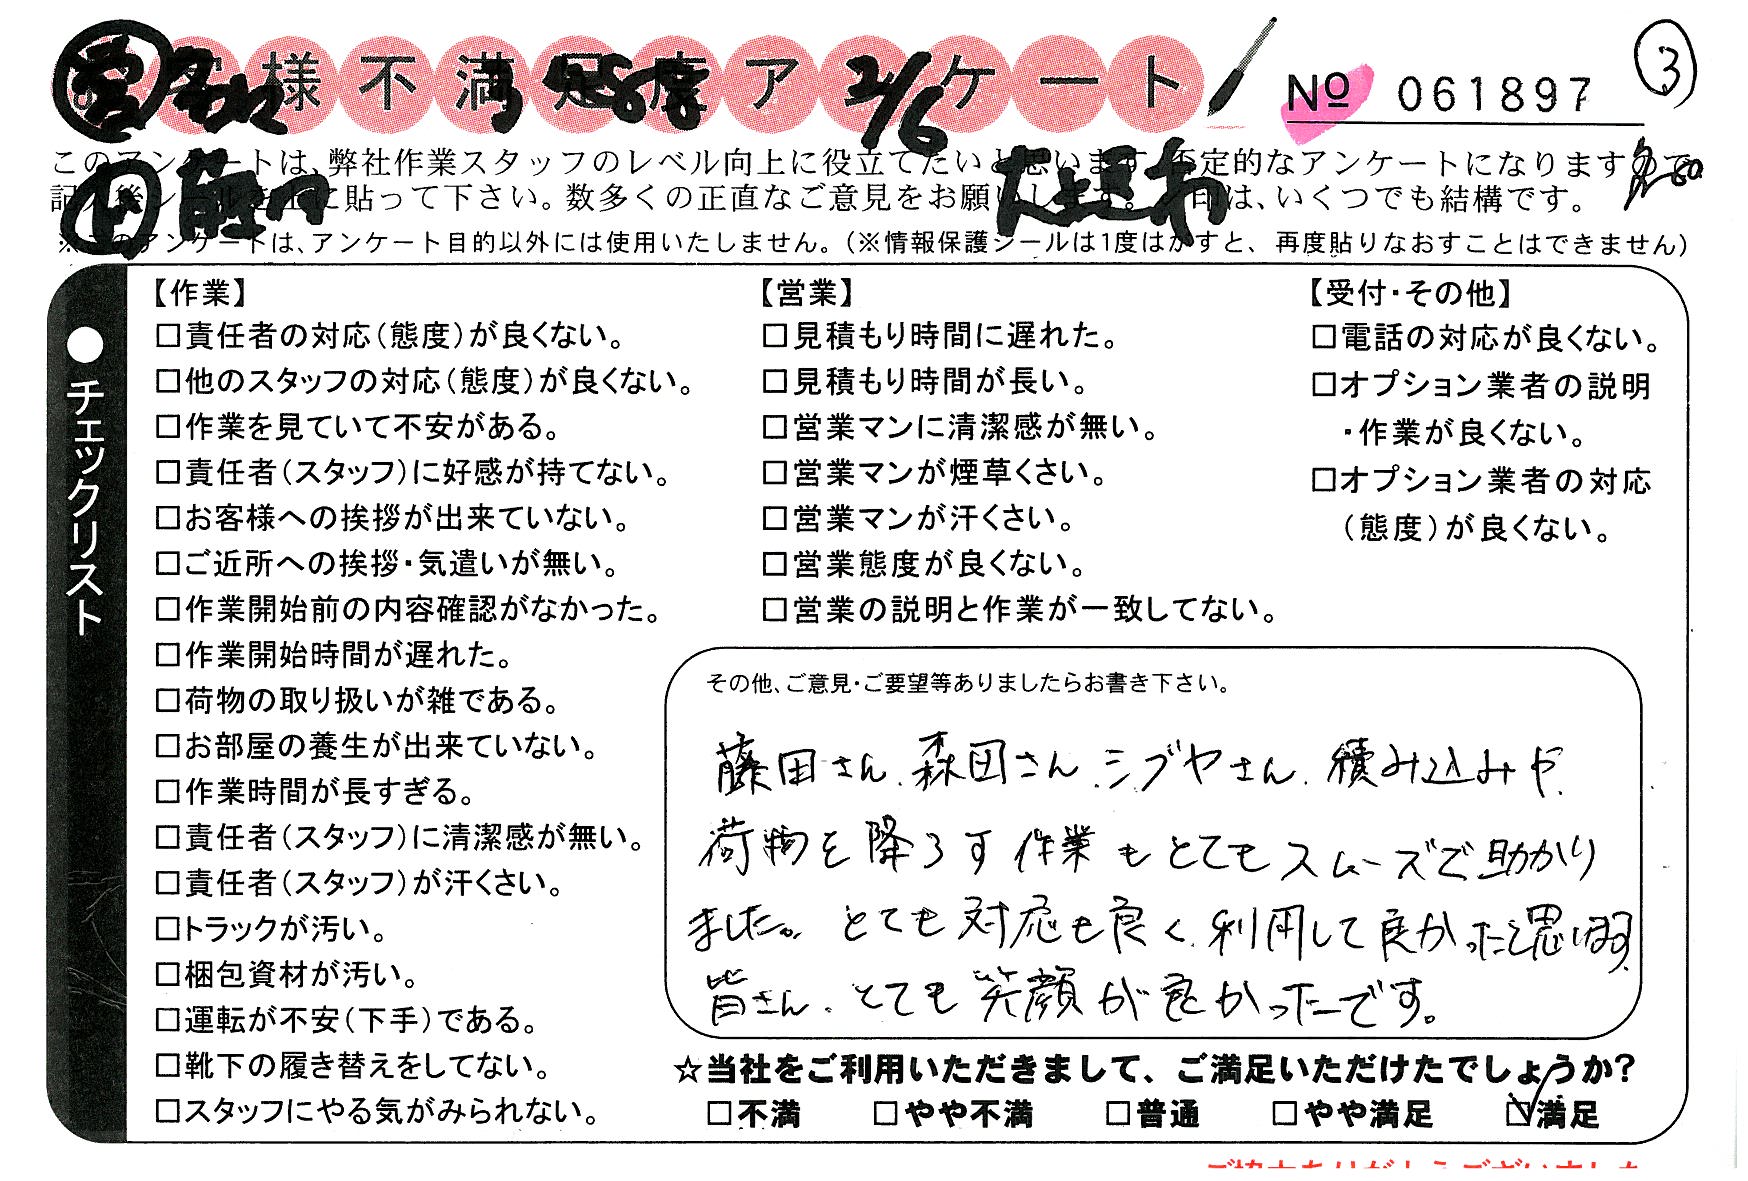 お客様不満足度アンケート
№ 061897
③
2/6
このアンケートは、弊社作業スタッフのレベル向上に役立てたいと思います。否定的なアンケートになりますので
記入後シールを上に貼って下さい。数多くの正直なご意見をお願いします。
は、いくつでも結構です。
※このアンケートは、アンケート目的以外には使用いたしません。（※情報保護シールは1度はがすと、再度貼りなおすことはできません）
●チェックリスト
【作業】
□責任者の対応（態度）が良くない。
□他のスタッフの対応（態度）が良くない。
□作業を見ていて不安がある。
□責任者（スタッフ）に好感が持てない。
□お客様への挨拶が出来ていない。
□ご近所への挨拶・気遣いが無い。
□作業開始前の内容確認がなかった。
□作業開始時間が遅れた。
□荷物の取り扱いが雑である。
□お部屋の養生が出来ていない。
□作業時間が長すぎる。
□責任者（スタッフ）に清潔感が無い。
□責任者（スタッフ）が汗くさい。
□トラックが汚い。
□梱包資材が汚い。
□運転が不安（下手）である。
□靴下の履き替えをしてない。
□スタッフにやる気がみられない。
【営業】
□見積もり時間に遅れた。
□見積もり時間が長い。
□営業マンに清潔感が無い。
□営業マンが煙草くさい。
□営業マンが汗くさい。
□営業態度が良くない。
□営業の説明と作業が一致してない。
【受付・その他】
□電話の対応が良くない。
□オプション業者の説明
・作業が良くない。
□オプション業者の対応
（態度）が良くない。
その他、ご意見・ご要望等ありましたらお書き下さい。
藤田さん、森田さん、シブヤさん、積み込みや
荷物を降ろす作業もとてもスムーズで助かり
ました。とても対応も良く、利用して良かったと思います。
皆さん、とても笑顔が良かったです。
☆当社をご利用いただきまして、ご満足いただけたでしょうか？
□不満 □やや不満 □普通 □やや満足 ☑満足
ご協力ありがとうございました